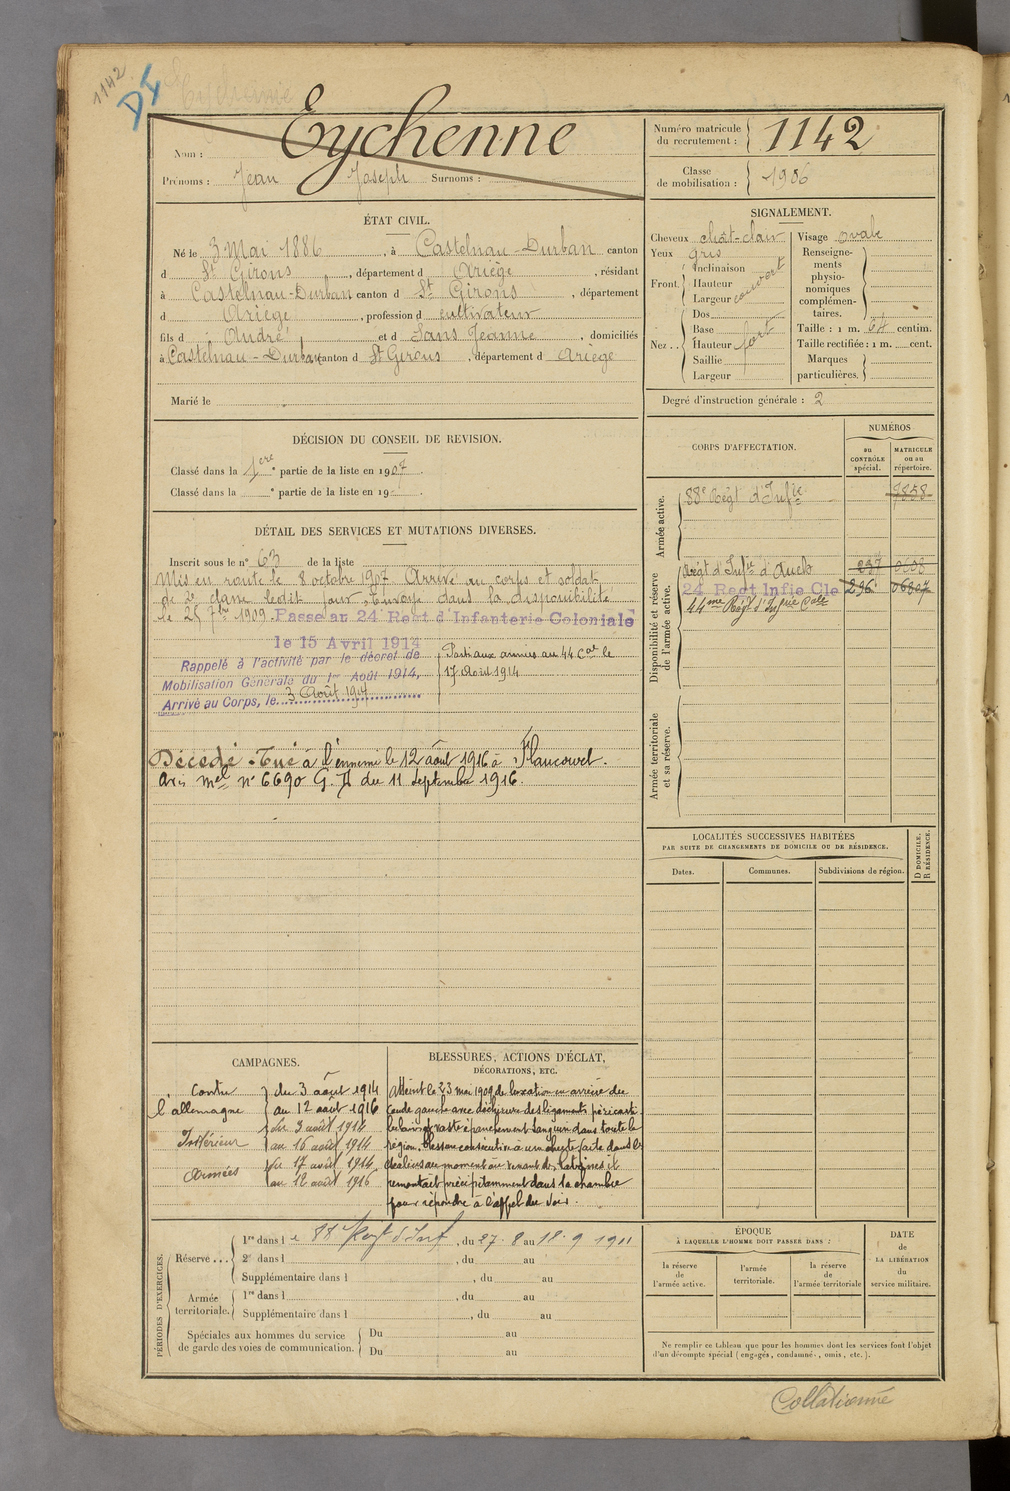 1142
DI
Eychenne
Nom :
Prénoms : Jean Joseph Surnoms :
Numéro matricule du recrutement : 1142
Classe de mobilisation : 1906
ÉTAT CIVIL.
Né le 3 Mai 1886, à Castelnau-Durban canton
d St Girons, département d Ariège, résidant
à Castelnau-Durban canton d St Girons, département
d Ariège, profession d cultivateur
fils d André et d Sans Jeanne, domiciliés
à Castelnau-Durban canton d St Girons, département d Ariège
Marié le
SIGNALEMENT.
Cheveux chât-clair
Yeux gris
Front. Inclinaison
Hauteur
Largeur couvert
Nez.. Dos
Base
Hauteur fort
Saillie
Largeur
Visage ovale
Renseigne-
ments
physio-
nomiques
complémen-
taires.
Taille : 1 m. 64 centim.
Taille rectifiée : 1 m. cent.
Marques
particulières.
Degré d'instruction générale : 2
DÉCISION DU CONSEIL DE REVISION.
Classé dans la 1ere partie de la liste en 1907.
Classé dans la e partie de la liste en 19 .
DÉTAIL DES SERVICES ET MUTATIONS DIVERSES.
Inscrit sous le n° 63 de la liste
Mis en route le 8 octobre 1907 Arrivé au corps et soldat
de 2e classe ledit jour. Envoyé dans la disponibilité
le 25 7bre 1909. Passé au 24 Regt d'Infanterie Coloniale
le 15 Avril 1914
Rappelé à l'activité par le décret de
Mobilisation Générale du 1er Août 1914,
Arrivé au Corps, le 3 Août 1914
Parti aux armées au 44 Cal le
17 Août 1914
Décédé. Tué à l'ennemi le 12 août 1916 à Flaucourt.
Avis mel n° 6690 G. A du 11 Septembre 1916.
CORPS D'AFFECTATION.
NUMÉROS
au CONTRÔLE spécial.
MATRICULE ou au répertoire.
Armée active.
88e Régt d'Infie 7858
Disponibilité et réserve de l'armée active.
Régt d'Infie d'Auch 237 0608
24 Regt Infie Cle 296
44me Rég d'Infrie Cale
Armée territoriale et sa réserve.
LOCALITÉS SUCCESSIVES HABITÉES
PAR SUITE DE CHANGEMENTS DE DOMICILE OU DE RÉSIDENCE.
D DOMICILE.
R RÉSIDENCE.
Dates. Communes. Subdivisions de région.
CAMPAGNES.
Contre l'allemagne du 3 août 1914
au 12 août 1916
Intérieur du 3 août 1914
au 16 août 1914
Armées du 17 août 1914
au 12 août 1916
BLESSURES, ACTIONS D'ÉCLAT,
DÉCORATIONS, ETC.
Atteint le 23 mai 1909 de luxation en arrière du
coude gauche avec déchirure des ligaments péricarti-
culaires et vaste épanchement sanguin dans toute la
région. Lésion consécutive à une chute faite dans les
escaliers au moment où venant des latrines il
remontait précipitamment dans la chambre
pour répondre à l'appel du soir.
PÉRIODES D'EXERCICES.
Réserve... 1re dans le 88 Regt d'Inf, du 27. 8 au 18. 9 1911
2e dans l , du au
Supplémentaire dans l , du au
Armée territoriale. 1re dans l , du au
Supplémentaire dans l , du au
Spéciales aux hommes du service
de garde des voies de communication.
Du au
Du au
ÉPOQUE
À LAQUELLE L'HOMME DOIT PASSER DANS :
la réserve de l'armée active.
l'armée territoriale.
la réserve de l'armée territoriale
DATE de LA LIBÉRATION du service militaire.
Ne remplir ce tableau que pour les hommes dont les services font l'objet
d'un décompte spécial (engagés, condamnés, omis, etc.).
Collationné